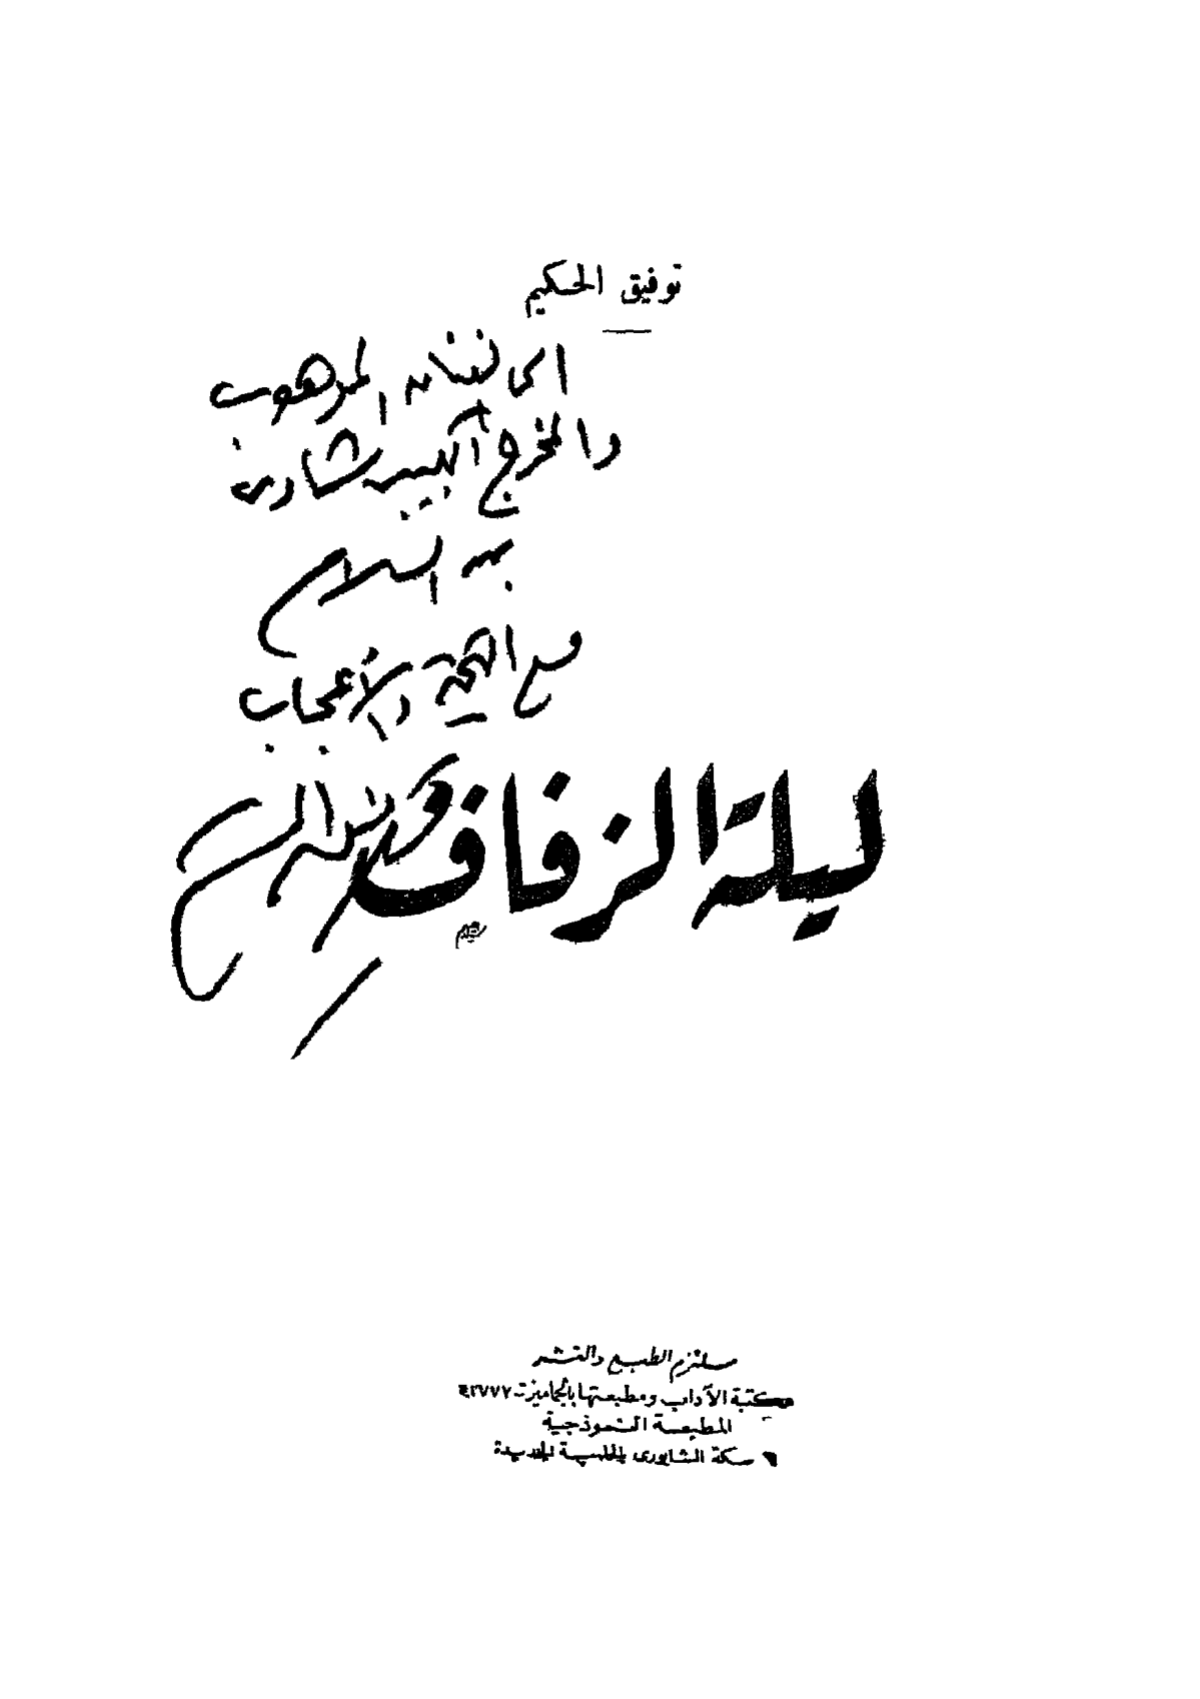 توفيق الحكيم
الى الفنان الموهوب
والمخرج الكبير شادى
عبد السلام
مع التحية والأعجاب
توفيق الحكيم
ليلة الزفاف
ملتزم الطبع والنشر
مكتبة الآداب ومطبعتها بالجماميزت ٤٢٧٧٧
المطبعة النموذجية
سكة الشابورى بالحلمية الجديدة